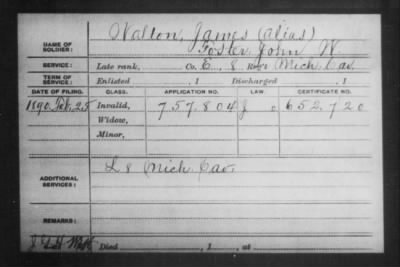 Walton, James (alias)
NAME OF SOLDIER: Foster, John W.
SERVICE: Late rank, Co. E, 8 Reg't Mich. Cav.
TERM OF SERVICE: Enlisted , 1 Discharged , 1
DATE OF FILING. CLASS. APPLICATION NO. LAW. CERTIFICATE NO.
1890 Feb. 25 Invalid, 757.804 J o 652.720
Widow,
Minor,
ADDITIONAL SERVICES: L 8 Mich. Cav.
REMARKS:
Died , 1 , at